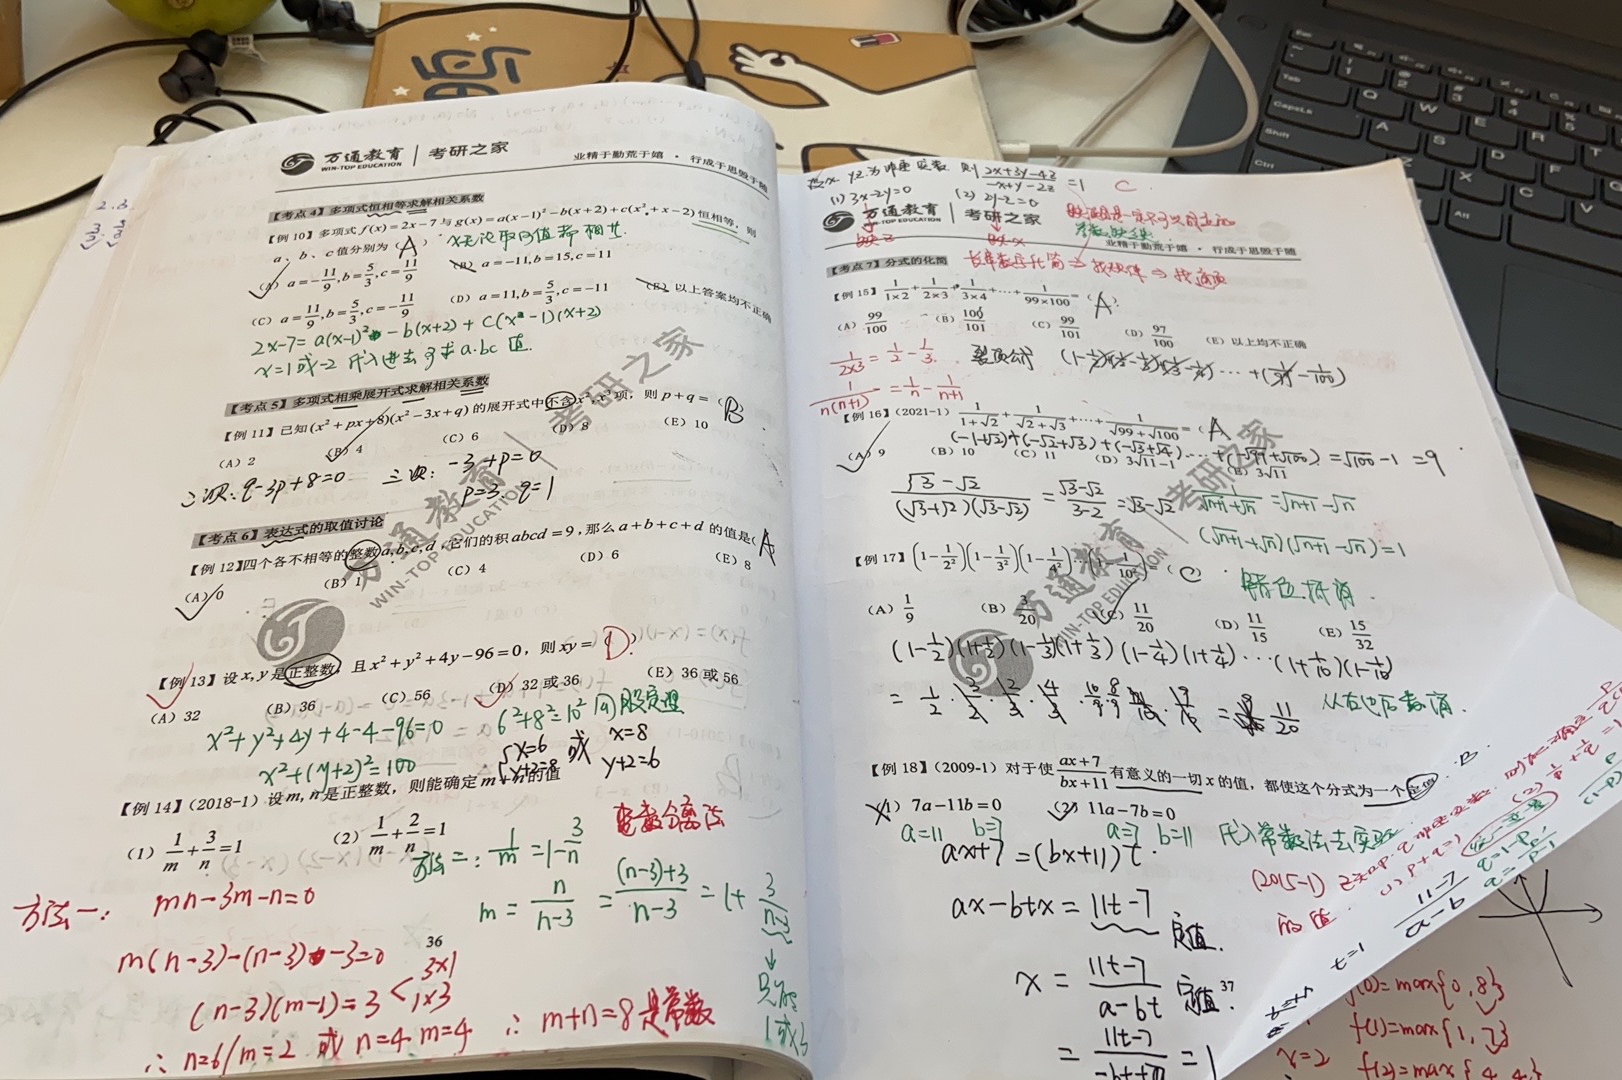 万通教育 | 考研之家
WIN-TOP EDUCATION
业精于勤荒于嬉 · 行成于思毁于随
【考点4】多项式恒相等求解相关系数
【例10】多项式 f(x)=2x-7 与 g(x)=a(x-1)²-b(x+2)+c(x²+x-2) 恒相等，则
a、b、c 值分别为（A）
x无论取何值都相等.
(A) a=-11/9,b=5/3,c=11/9
(B) a=-11,b=15,c=11
(C) a=11/9,b=5/3,c=-11/9
(D) a=11,b=5/3,c=-11
(E) 以上答案均不正确
2x-7=a(x-1)²-b(x+2)+c(x-1)(x+2)
x=1或-2 代入进去 寻求a.bc值.
【考点5】多项式相乘展开式求解相关系数
【例11】已知(x²+px+8)(x²-3x+q) 的展开式中不含x²,x³项，则 p+q=（B）
(A) 2
(B) 4
(C) 6
(D) 8
(E) 10
二次: q-3p+8=0 三次: -3+p=0
p=3 q=1
【考点6】表达式的取值讨论
【例12】四个各不相等的整数a,b,c,d，它们的积abcd=9，那么a+b+c+d 的值是（A
(A) 0
(B) 1
(C) 4
(D) 6
(E) 8
【例13】设x,y是正整数，且x²+y²+4y-96=0，则xy=（D）
(A) 32
(B) 36
(C) 56
(D) 32 或 36
(E) 36 或 56
x²+y²+4y+4-4-96=0
6²+8²=10² 勾股定理
x²+(y+2)²=100
{x=6 y+2=8 或 x=8 y+2=6
【例14】（2018-1）设m,n是正整数，则能确定m+n的值
(1) 1/m+3/n=1
(2) 1/m+2/n=1
变数分离法
方法二: 1/m=1-3/n
m=n/(n-3)=((n-3)+3)/(n-3)=1+3/(n-3)
↓
只能
1或3
方法一: mn-3m-n=0
m(n-3)-(n-3)-3=0
(n-3)(m-1)=3 < 3×1 1×3
∴ n=6/m=2 或 n=4 m=4 ∴ m+n=8是常数
36
y z为非零实数 则 (2x+3y-4z)/(-x+y-2z)=1 C
(1) 3x-2y=0 (2) 2y-z=0
万通教育 | 考研之家
WIN-TOP EDUCATION
业精于勤荒于嬉 · 行成于思毁于随
缺z 缺x
【考点7】分式的化简
⇒ 找规律 ⇒ 找通项
【例15】1/(1×2)+1/(2×3)+1/(3×4)+⋯+1/(99×100)=（A）
(A) 99/100
(B) 100/101
(C) 99/101
(D) 97/100
(E) 以上均不正确
1/(2×3)=1/2-1/3. 裂项公式
1/(n(n+1))=1/n-1/(n+1)
【例16】（2021-1）1/(1+√2)+1/(√2+√3)+⋯+1/(√99+√100)=（A
(A) 9
(B) 10
(C) 11
(D) 3√11-1
(E) 3√11
(-1+√2)+(-√2+√3)+(-√3+√4)…+(-√99+√100)=√100-1=9
(√3-√2)/((√3+√2)(√3-√2))=(√3-√2)/(3-2)=√3-√2
1/(√n+1+√n)=√n+1-√n
(√n+1+√n)(√n+1-√n)=1
【例17】(1-1/2²)(1-1/3²)(1-1/4²)⋯(1-1/10²)=（C）
错位抵消.
(A) 1/9
(B) 3/20
(C) 11/20
(D) 11/15
(E) 15/32
(1-1/2)(1+1/2)(1-1/3)(1+1/3)(1-1/4)(1+1/4)⋯(1+1/10)(1-1/10)
= 11/20
【例18】（2009-1）对于使 (ax+7)/(bx+11) 有意义的一切x的值，都使这个分式为一个定值 . B
(1) 7a-11b=0
(2) 11a-7b=0
a=11 b=7
a=7 b=11 代入常数法去实验
ax+7=(bx+11)t.
ax-btx=11t-7 定值.
x=(11t-7)/(a-bt) 定值?
37
(2015-1)
的值.
(11-7)/(a-b)
t=1
f(0)=max{0,8}
f(1)=max{1,7}
x=2 f(2)=max{4,4}